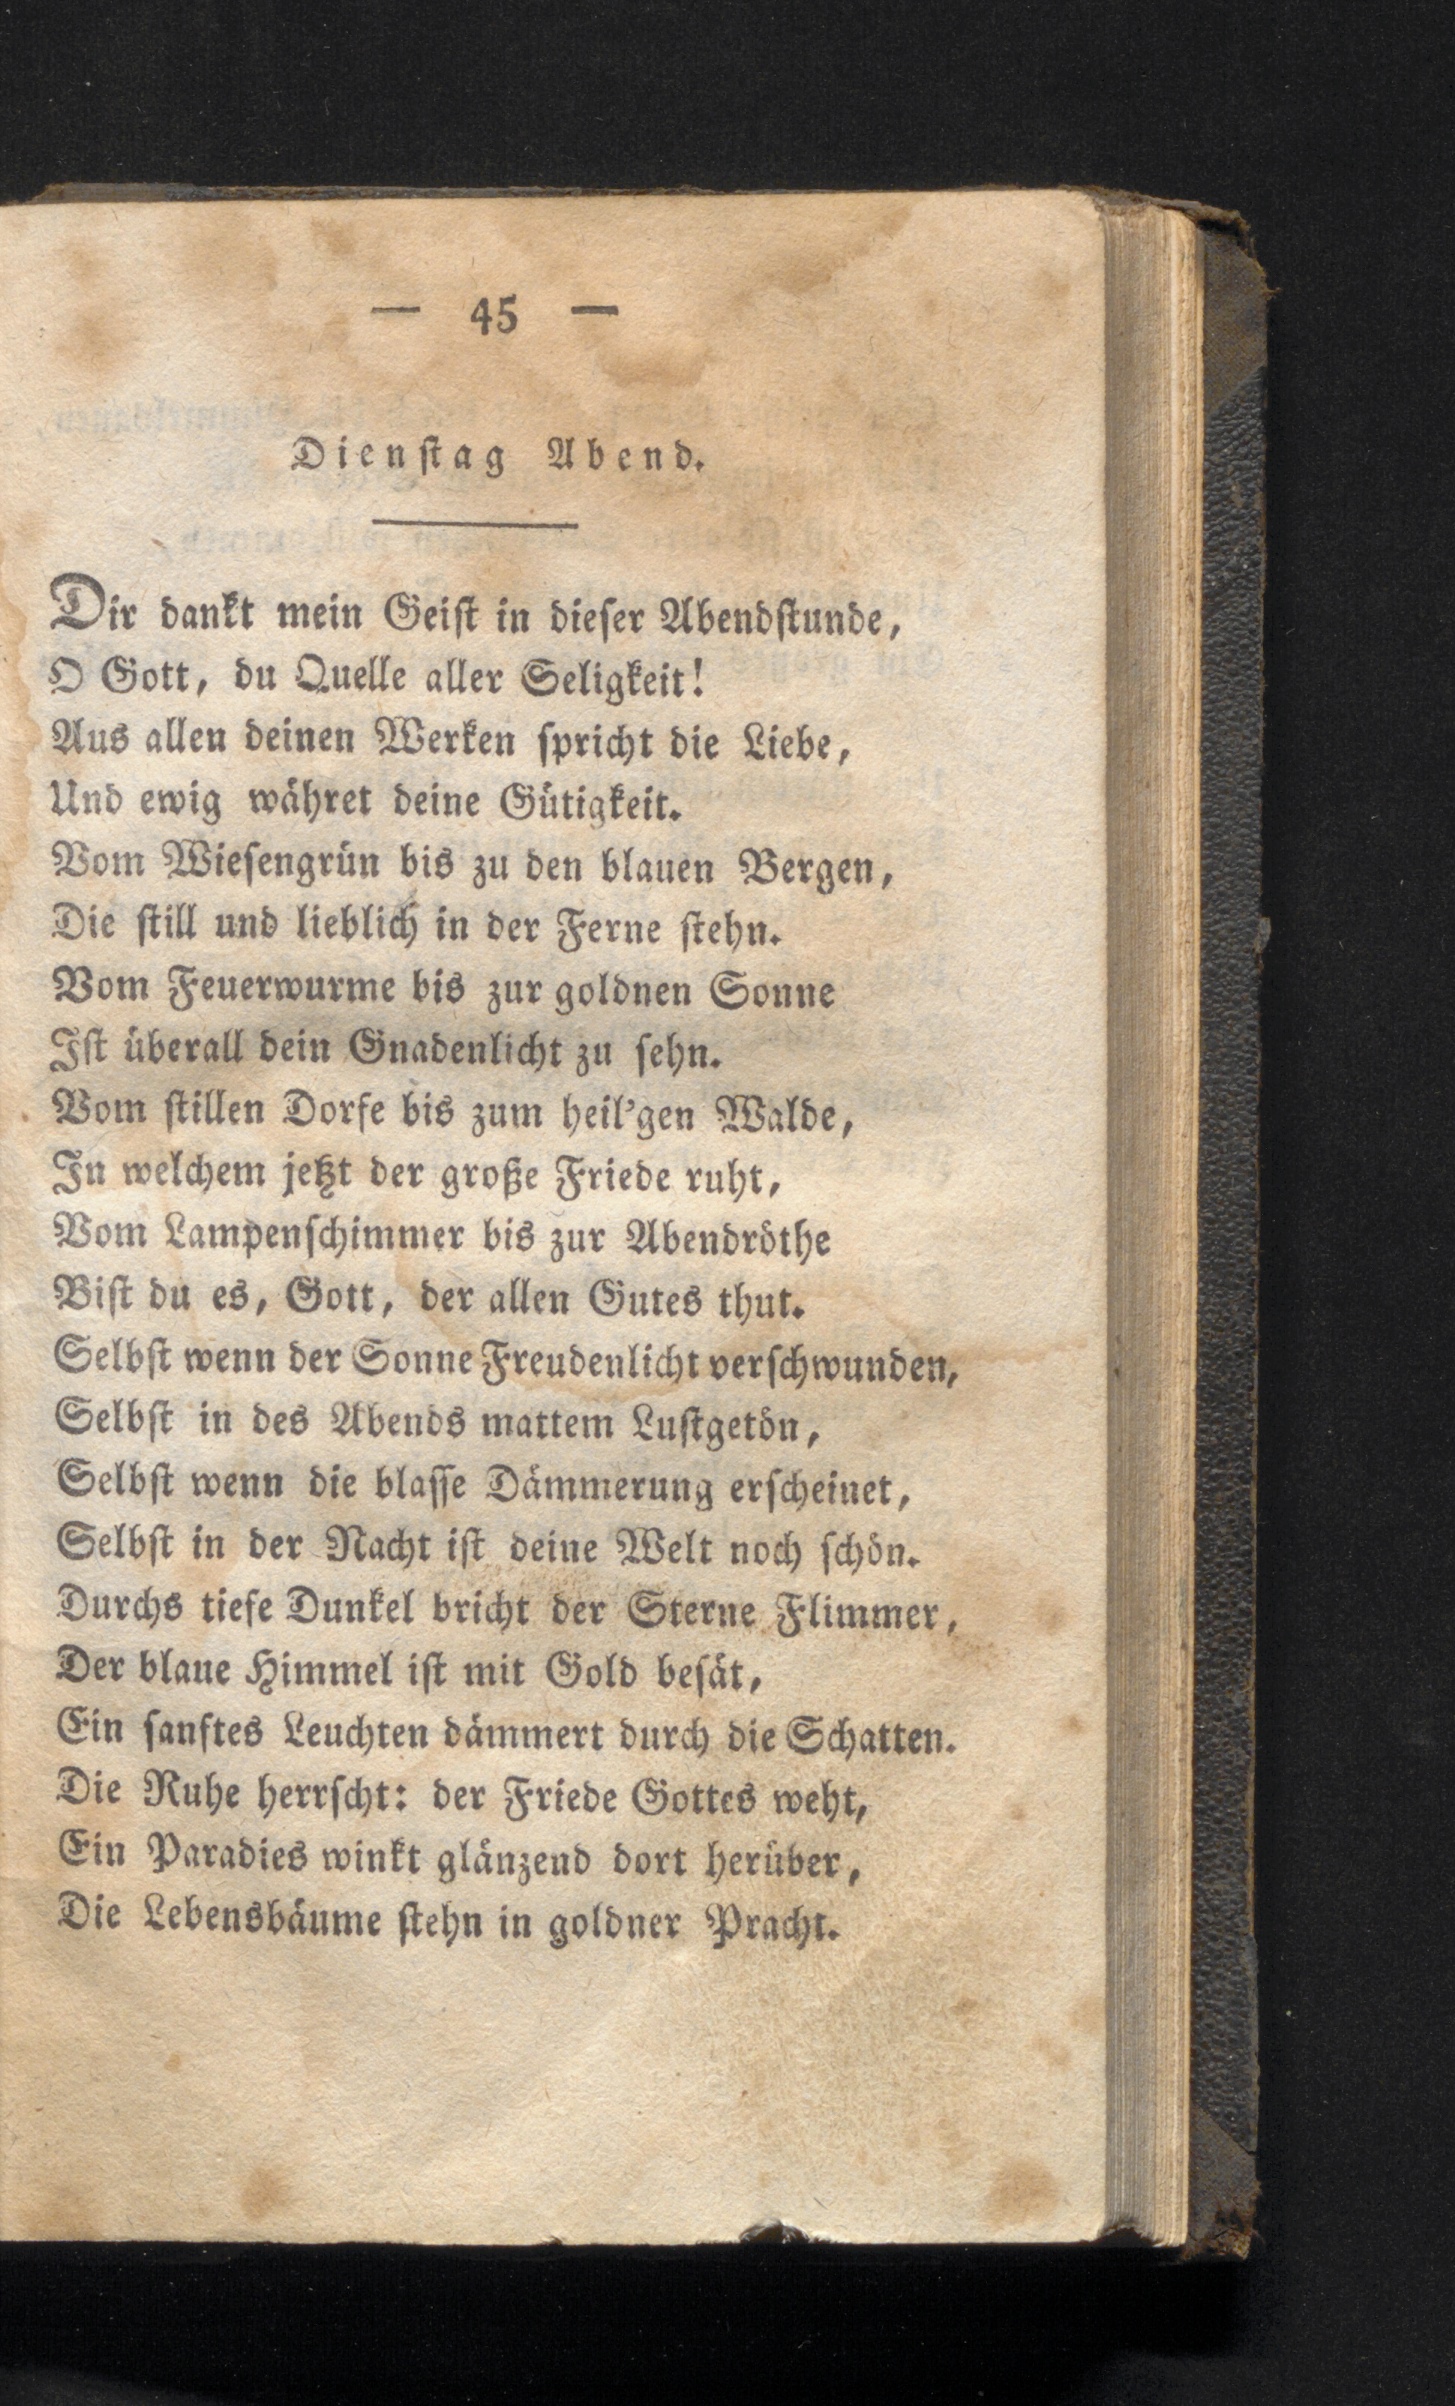 — 45 —
Dienſtag Abend.
Dir dankt mein Geiſt in dieſer Abendſtunde,
O Gott, du Quelle aller Seligkeit!
Aus allen deinen Werken ſpricht die Liebe,
Und ewig währet deine Gütigkeit.
Vom Wieſengrün bis zu den blauen Bergen,
Die ſtill und lieblich in der Ferne ſtehn.
Vom Feuerwurme bis zur goldnen Sonne
Iſt überall dein Gnadenlicht zu ſehn.
Vom ſtillen Dorfe bis zum heil'gen Walde,
In welchem jetzt der große Friede ruht,
Vom Lampenſchimmer bis zur Abendröthe
Biſt du es, Gott, der allen Gutes thut.
Selbſt wenn der Sonne Freudenlicht verſchwunden,
Selbſt in des Abends mattem Luſtgetön,
Selbſt wenn die blaſſe Dämmerung erſcheinet,
Selbſt in der Nacht iſt deine Welt noch ſchön.
Durchs tiefe Dunkel bricht der Sterne Flimmer,
Der blaue Himmel iſt mit Gold beſät,
Ein ſanftes Leuchten dämmert durch die Schatten.
Die Ruhe herrſcht: der Friede Gottes weht,
Ein Paradies winkt glänzend dort herüber,
Die Lebensbäume ſtehn in goldner Pracht.